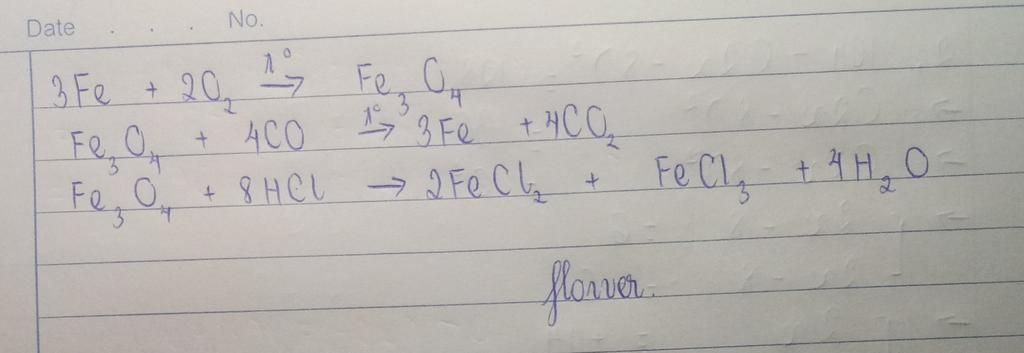 Date . . . No.
3Fe + 2O₂ t° → Fe₃O₄
Fe₃O₄ + 4CO t° → 3Fe + 4CO₂
Fe₃O₄ + 8HCl → 2FeCl₂ + FeCl₃ + 4H₂O